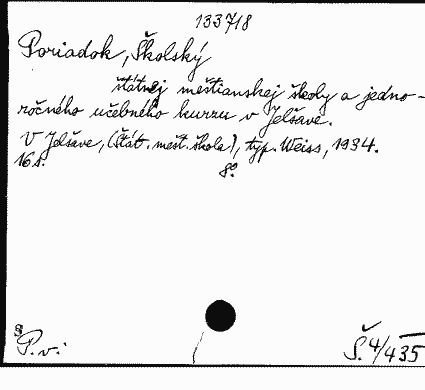 133718
Poriadok, Školský
štátnej meštianskej školy a jedno-
ročného učebného kurzu v Jelšave.
V Jelšave, (Štát. mešt. škola), typ. Weiss, 1934.
16 s. 8°
P. vi: Š. 4/435